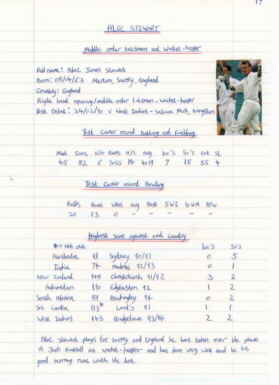 17
ALEC STEWART
Middle order batsman and wicket-keeper
Full name: Alec James Stewart
Born: 08/04/63 Merton, Surrey, England
Country: England
Right hand opening/middle order batsman - wicket-keeper
Test Debut: 24/02/90 v West Indies - Sabina Park, Kingston
Test Career record Batting and Fielding
Mat Inns N/O Runs H/S Avg 100's 50's Cat St
45 82 6 190 7 15 55 4
Test Career record Bowling
Balls Runs Wkts Avg Best 5WI 10WM
20 13 0 - - - -
Highest score against each Country
* = not out
100's 50's
Australia Sydney 90/91 0 5
India 74 Madras 92/93 0 1
New Zealand 148 Christchurch 91/92 3 2
Pakistan 190 Edgbaston 92 1 2
South Africa Headingley 94 0 2
Sri Lanka Lord's 91 1 1
West Indies 143 Bridgetown 93/94 2 2
Alec Stewart plays for Surrey and England he has taken over the place
of Jack Russell as wicket-keeper and has done very well and to be
good scoring runs with the bat.